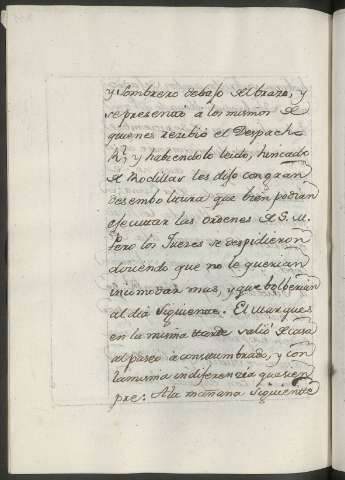 y Sombrero debajo del brazo, y
se presentó a los mismos de
quienes recibió el Despacho
Rl, y habiendolo leido, hincado
de Rodillas les dijo con gran
desemboltura que bien podian
efecutar las ordenes de S. M.
Pero los Jueses se despidieron
diciendo que no le querian
incomodar mas, y que bolberian
al dia siguiente. El Marques
en la misma tarde salió de casa
al paseo acostumbrado, y con
la misma indiferenzia que siem
pre. A la mañana siguiente